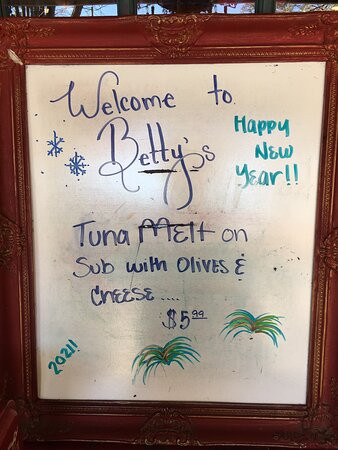 Welcome to
Betty's
Happy
New
Year!!
Tuna Melt on
Sub with Olives &
Cheese....
$5.99
2021!